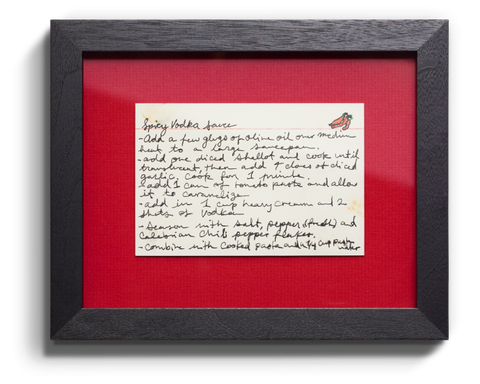 Spicy Vodka Sauce
-Add a few glugs of olive oil over medium
heat to a large saucepan.
-add one diced shallot and cook until
translucent, then add 4 cloves of diced
garlic, cook for 1 minute.
-add 1 can of tomato paste and allow
it to caramelize
-add in 1 cup heavy cream and 2
shots of Vodka
-Season with salt, pepper, (fresh) and
Calabrian chili pepper flakes.
-Combine with cooked pasta and 1/4 cup pasta
water